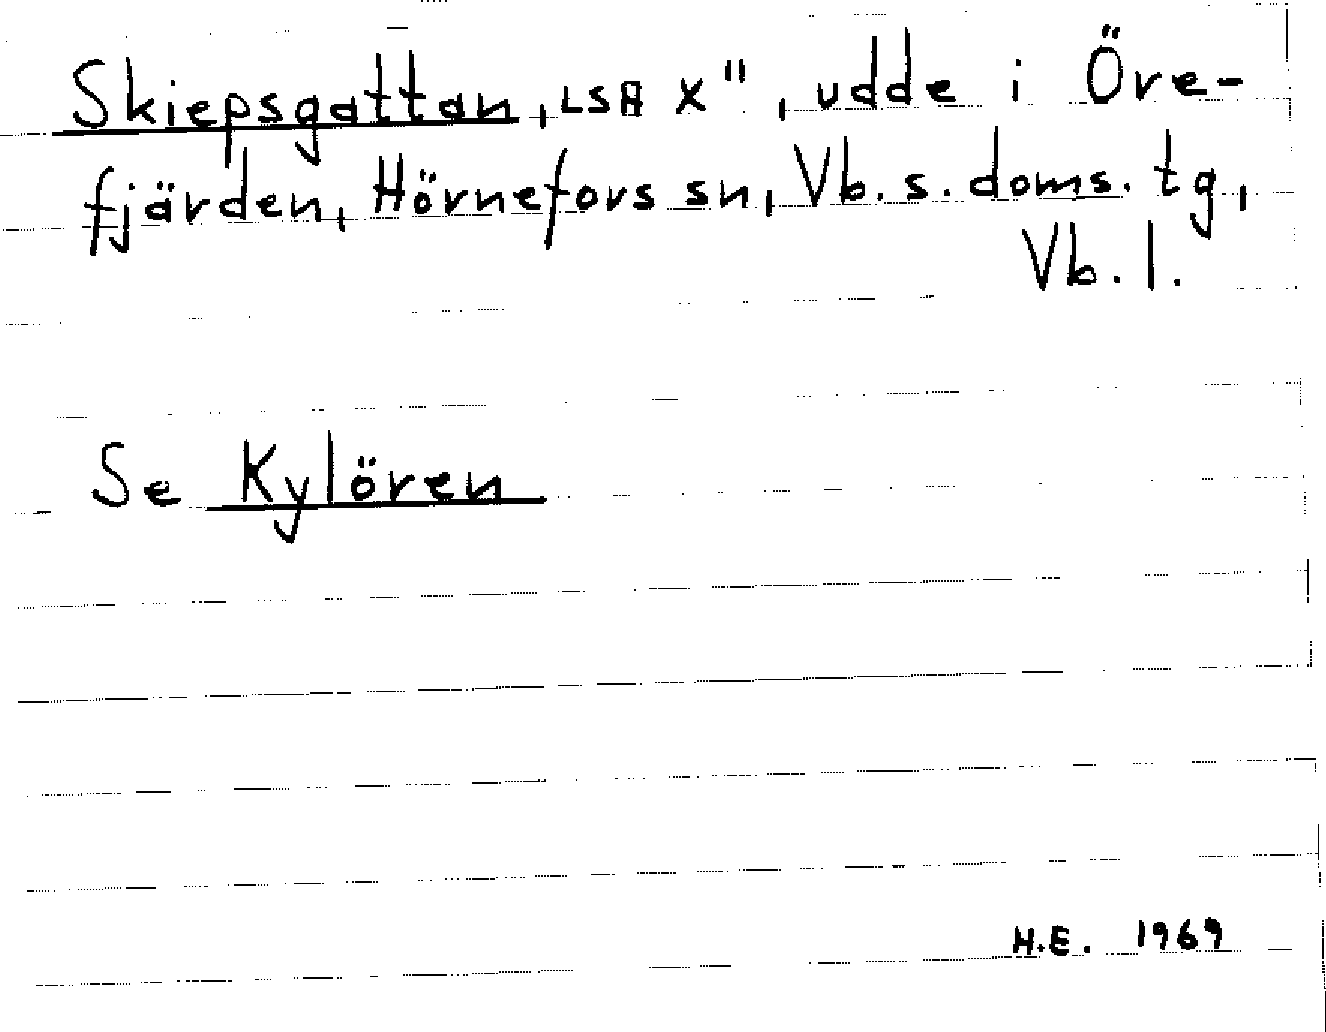 Skiepsgattan, LSA X", udde i Öre-
fjärden, Hörnefors sn, Vb. s. doms. tg,
Vb. l.
Se Kylören
H.E. 1969